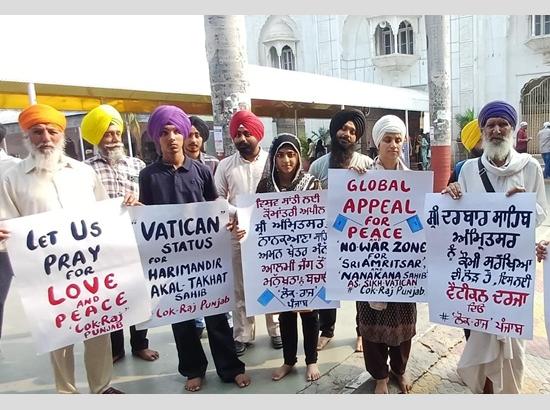 LET US
PRAY
FOR
LOVE
AND
PEACE
"LOK-RAJ"
PUNJAB
"VATICAN"
STATUS
FOR
HARIMANDIR
AKAL-TAKHAT
SAHIB
LOK-RAJ PUNJAB
ਵਿਸ਼ਵ ਸ਼ਾਂਤੀ ਲਈ
ਕੌਮਾਂਤਰੀ ਅਪੀਲ
ਨਾਨਕਾਣਾ
ਅਮਨ ਖੇਤਰ
ਆਲਮੀ ਜੰਗ ਤੋਂ
ਮਨੁੱਖਤਾ ਬਚਾਓ
#'ਲੋਕ-ਰਾਜ'
ਪੰਜਾਬ
GLOBAL APPEAL
FOR
PEACE
AND
NO-WAR ZONE
FOR
"SRI AMRITSAR"
AND
"NANAKANA SAHIB"
AS SIKH-VATICAN
#LOK-RAJ PUNJAB
ਸ਼੍ਰੀ ਦਰਬਾਰ ਸਾਹਿਬ
ਅੰਮ੍ਰਿਤਸਰ
ਨੂੰ ਕੌਮੀ ਸੁਰੱਖਿਆ
ਵੈਟੀਕਨ ਦਰਜਾ
ਦਿਓ
#'ਲੋਕ-ਰਾਜ' ਪੰਜਾਬ